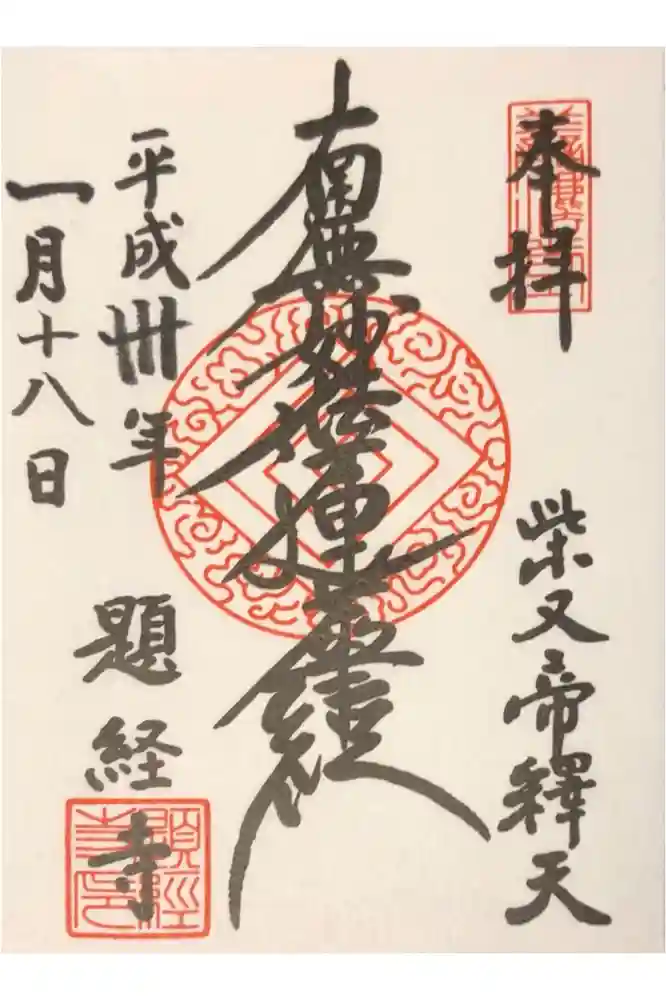 奉拝
柴又帝釋天
南無妙法蓮華経
平成卅年
一月十八日
題経寺
題經寺印